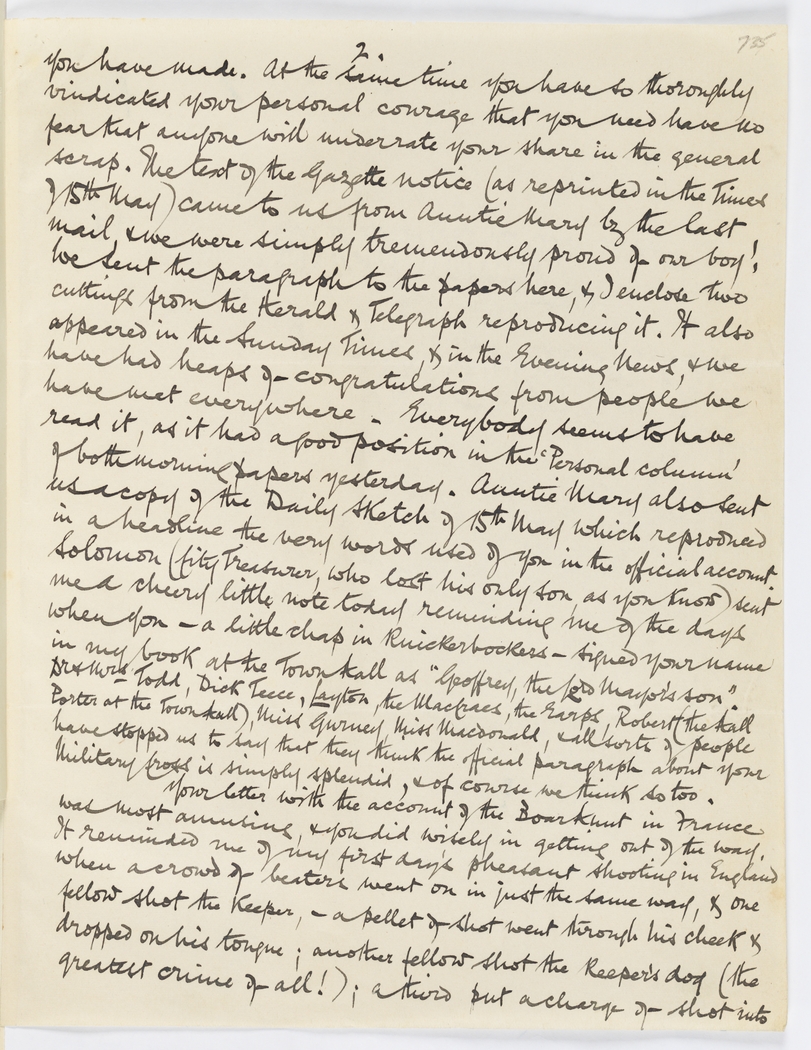 735
2
you have made. At the same time you have so thoroughly
vindicated your personal courage that you need have no
fear that anyone will underrate your share in the general
scrap. The text of the Gazette notice (as reprinted in the Times
of 15th May) came to us from Auntie Mary by the last
mail, & we were simply tremendously proud of our boy!
We sent the paragraph to the papers here, & I enclose two
cuttings from the Herald & Telegraph reproducing it. It also
appeared in the Sunday Times, & in the Evening News, & we
have had heaps of congratulations from people we
have met everywhere - Everybody seems to have
read it, as it had a good position in the "Personal column"
of both morning papers yesterday. Auntie Mary also sent
us a copy of the Daily Sketch of 15th May which reproduced
in a headline the very words used of you in the official account
Solomon (City Treasurer, who lost his only son, as you know) sent
me a cheery little note today reminding me of the days
when you - a little chap in Knickerbockers - signed your name
in my book at the Town Hall as "Geoffrey, the Lord Mayor's son".
Dr & Mrs Todd, Dick Teece, Layton, the MacCraes, the Earps, Robert (the Hall
Porter at the Town Hall), Miss Gurney, Miss Macdonald, & all sorts of people
have stopped us to say that they think the official paragraph about your
Military Cross is simply splendid, & of course we think so too.
Your letter with the account of the Boar Hunt in France
was most amusing, & you did wisely in getting out of the way.
It reminded me of my first day's pheasant shooting in England
when a crowd of beaters went on in just the same way, & one
fellow shot the Keeper, - a pellet of shot went through his cheek &
dropped on his tongue; another fellow shot the Keeper's dog (the
greatest crime of all!); a third put a charge of shot into